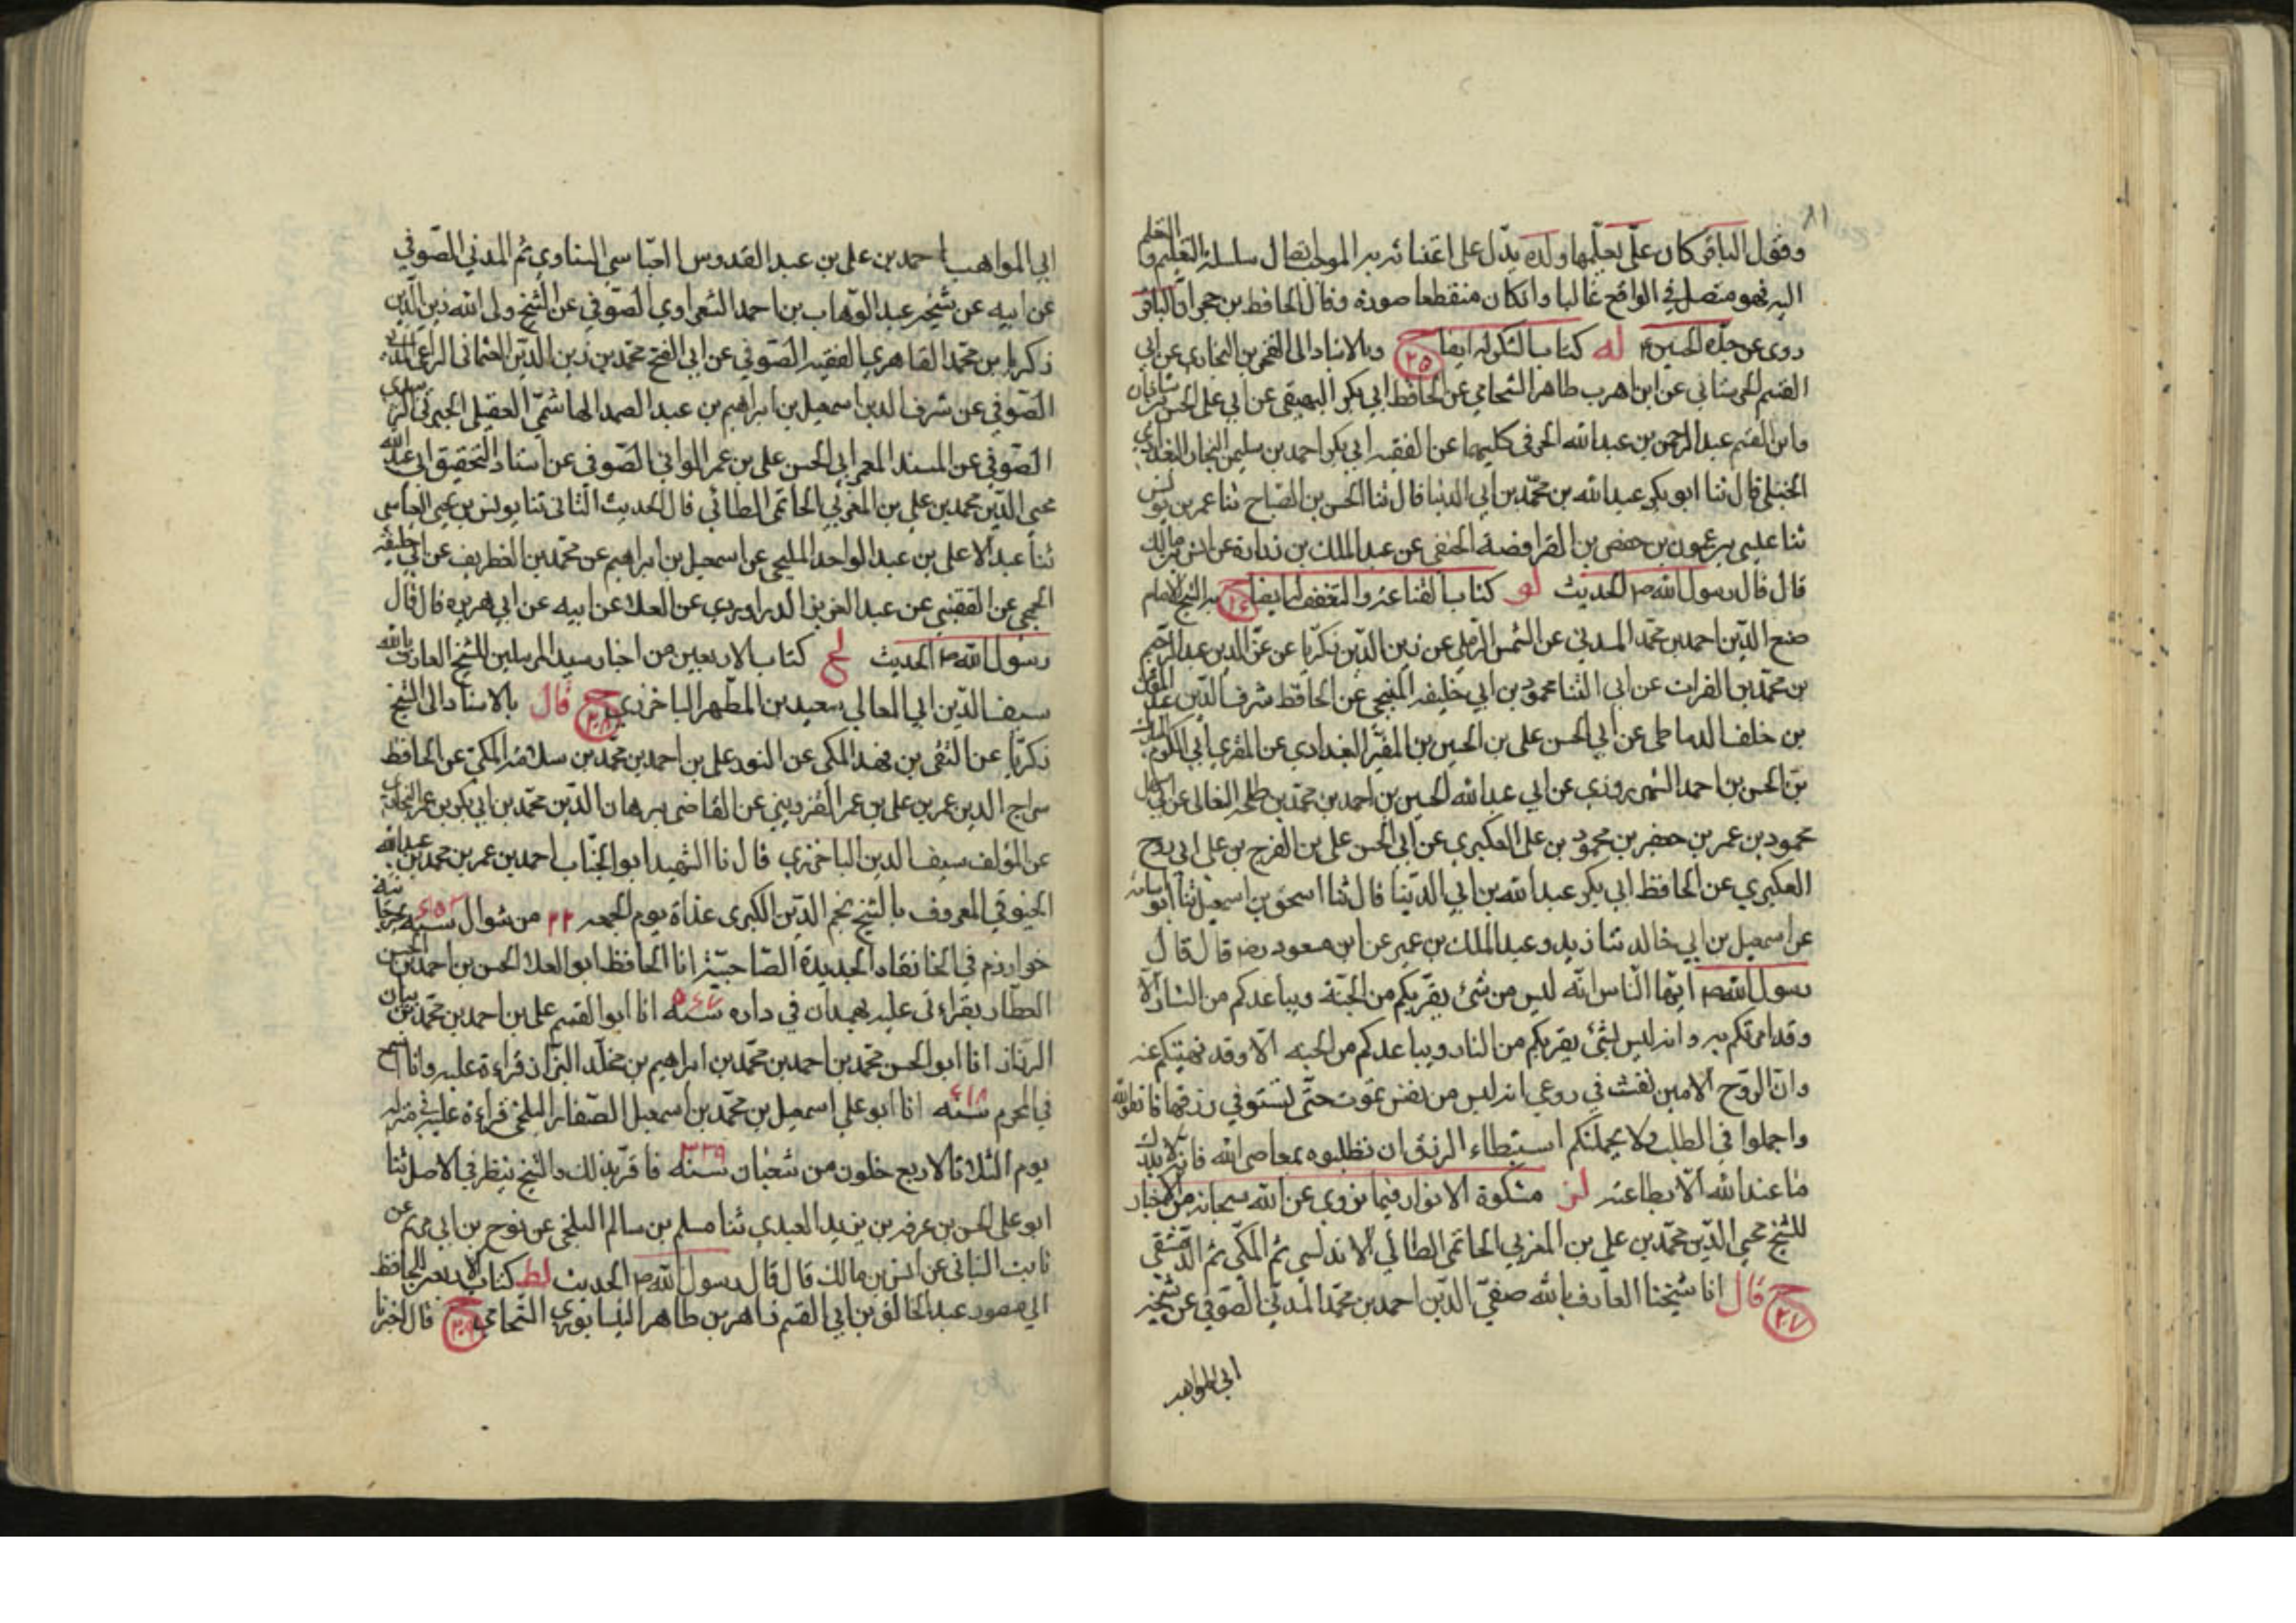 ٨١
وفقول الباقر كان علي يعلمها ولده يدل على اعتنائه به الموجب اتصال سلسلة التعليم والتعلم
اليه فهو متصل في الواقع غالبا وان كان منقطعا صورة وقال الحافظ بن حجر ان الباقر
روى عن جده الحسين له كتاب الشكر له ايضا ح ٢٥ وبالاسناد الى الفخر بن البخاري عن ابي
القسم الحرستاني عن زاهر بن طاهر الشحامي عن الحافظ ابي بكر البيهقي عن ابي علي الحسن بن شاذان
وابن القسم عبد الرحمن بن عبد الله الحرفي كليهما عن الفقيه ابي بكر احمد بن سليمن النجاد البغدادي
الحنبلي قال ثنا ابو بكر عبد الله بن محمد بن ابي الدنيا قال ثنا الحسن بن الصباح ثنا عمر بن يونس
ثنا عيسى بن عون بن حفص بن الفرافصة الحنفي عن عبد الملك بن زرارة عن انس بن مالك
قال قال رسول الله ص الحديث لو كتاب القناعة والتعفف له ايضا ح ٢٦ به الى الشيخ الامام
صفي الدين احمد بن محمد المدني عن الشمس الرملي عن زين الدين زكريا عن عز الدين عبد الرحيم
بن محمد بن الفرات عن ابي الثنا محمود بن ابي خليفه المنبجي عن الحافظ شرف الدين عبد المؤمن
بن خلف الدمياطي عن ابي الحسن علي بن الحسين بن المقير البغدادي عن المقري ابي الكرم المبارك
بن الحسن بن احمد الشهرزوري عن ابي عبد الله الحسين بن احمد بن محمد بن طلحه النعالي عن ابي سهل
محمود بن عمر بن جعفر بن محمود بن علي العكبري عن ابي الحسن علي بن الفرج بن علي ابي روح
العكبري عن الحافظ ابي بكر عبد الله بن ابي الدنيا قال ثنا اسحق بن اسمعيل ثنا ابو اسامة
عن اسمعيل بن ابي خالد ثنا زبيد وعبد الملك بن عمير عن ابن مسعود رض قال قال
رسول الله ص ايها الناس انه ليس من شئ يقربكم من الجنة ويباعدكم من النار الا
وقد امرتكم به وانه ليس شئ يقربكم من النار ويباعدكم من الجنه الا وقد نهيتكم عنه
وان الروح الامين نفث في روعي انه ليس من نفس تموت حتى تستوفي رزقها فاتقوا الله
واجملوا في الطلب ولا يحملنكم استبطاء الرزق ان تطلبوه بمعاصي الله فانه لا يدرك
ما عند الله الا بطاعته لز مشكوة الانوار فيما روي عن الله سبحانه من الاخبار
للشيخ محيي الدين محمد بن علي بن المغربي الحاتمي الطائي الاندلسي ثم المكي ثم الدمشقي
ح ٢٧ قال انا شيخنا العارف بالله صفي الدين احمد بن محمد المدني الصوفي عن شيخه
ابي المواهب
ابي المواهب احمد بن علي بن عبد القدوس العباسي الشناوي ثم المدني الصوفي
عن ابيه عن شيخه عبد الوهاب بن احمد الشعراوي الصوفي عن الشيخ ولي الله زين الدين
زكريا بن محمد القاهري الفقيه الصوفي عن ابي الفتح محمد بن زين الدين العثماني المراغي المدني
الصوفي عن شرف الدين اسمعيل بن ابراهيم بن عبد الصمد الهاشمي العقيلي الجبرتي الزبيدي
الصوفي عن المسند المعمر ابي الحسن علي بن عمر الواني الصوفي عن استاد التحقيق ابي عبد الله
محيي الدين محمد بن علي بن المغربي الحاتمي الطائي قال الحديث الثاني ثنا يونس بن يحيى العباسي
ثنا عبد الاعلى بن عبد الواحد المليحي عن اسمعيل بن ابراهيم عن محمد بن الغطريف عن ابي خليفه
الجمحي عن القعنبي عن عبد العزيز الدراوردي عن العلا عن ابيه عن ابي هريره قال قال
رسول الله ص الحديث لح كتاب الاربعين من اخبار سيد المرسلين للشيخ العارف بالله
سيف الدين ابي المعالي سعيد بن المطهر الباخرزي ح ٢٨ قال بالاسناد الى الشيخ
زكريا عن التقي بن فهد المكي عن النور علي بن احمد بن محمد بن سلامة المكي عن الحافظ
سراج الدين عمر بن علي بن عمر القزويني عن القاضي برهان الدين محمد بن ابي بكر بن عمر البخاري
عن المؤلف سيف الدين الباخرزي قال نا الشهيد ابو الجناب احمد بن عمر بن محمد بن عبد الله
الخيوقي المعروف بالشيخ نجم الدين الكبرى غداة يوم الجمعه ٢٢ من شوال سنة
خوارزم في الخانقاه الجديدة الصاحبية انا الحافظ ابو العلا الحسن بن احمد بن الحسن
العطار بقراءتي عليه بهمدان في داره سنة ٥٤٧ انا ابو القسم علي بن احمد بن محمد بن بيان
الرزاز انا ابو الحسن محمد بن احمد بن محمد بن ابراهيم بن مخلد البزاز قراءة عليه وانا اسمع
في المحرم سنه ٤١٨ انا ابو علي اسمعيل بن محمد بن اسمعيل الصفار البلخي قراءة عليه في منزله
يوم الثلاثا لاربع خلون من شعبان سنه ٣٣٩ فاقر بذلك والشيخ ينظر في الاصل ثنا
ابو علي الحسن بن عرفه بن يزيد العبدي ثنا مسلم بن سالم البلخي عن نوح بن ابي مريم عن
ثابت البناني عن انس بن مالك قال قال رسول الله ص الحديث لط كتاب الاربعين للحافظ
ابي منصور عبد الخالق بن ابي القسم زاهر بن طاهر النيسابوري الشحامي ح ٢٩ قال اخبرنا